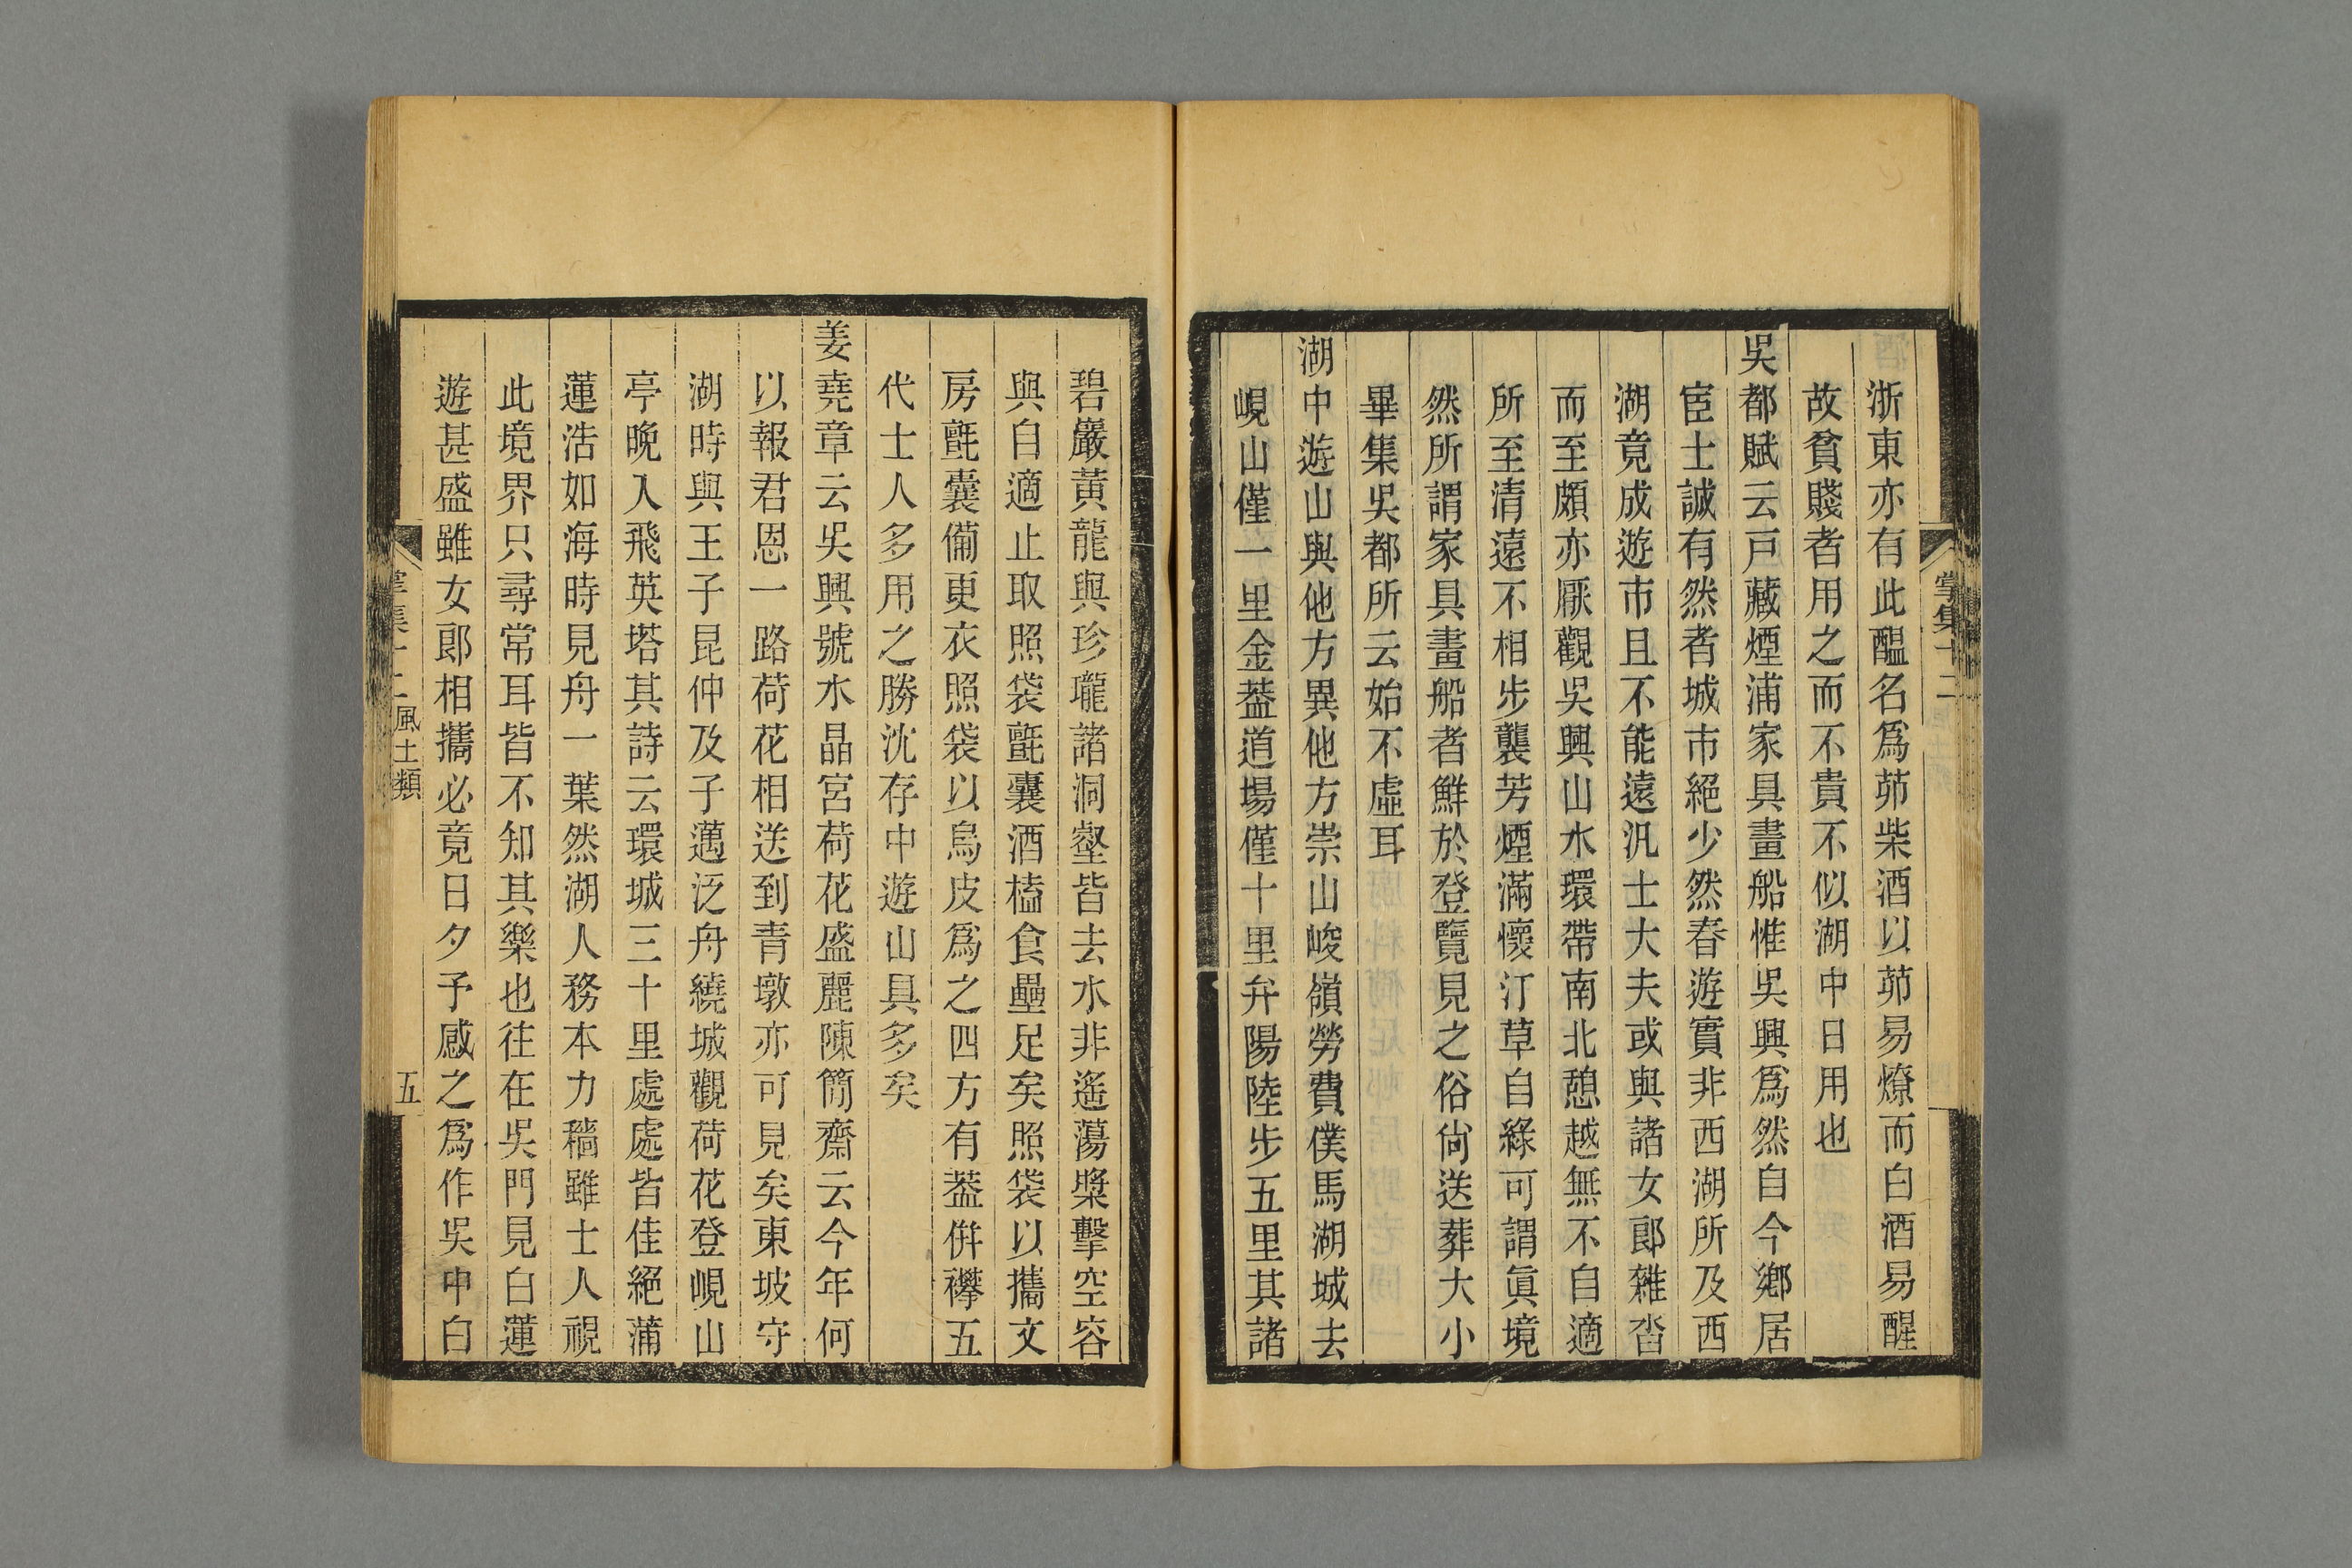 掌集十二
浙東亦有此醖名爲茆柴酒以茆易燎而白酒易醒
故貧賤者用之而不貴不似湖中日用也
吳都賦云戸藏煙浦家具畫船惟吳興爲然自今鄉居
宦士誠有然者城市絕少然春遊實非西湖所及西
湖竟成遊市且不能遠汎士大夫或與諸女郞雜沓
而至頗亦厭觀吳興山水環帶南北憩越無不自適
所至清遠不相步襲芳煙滿懷汀草自綠可謂眞境
然所謂家具畫船者鮮於登覽見之俗尙送葬大小
畢集吳都所云始不虛耳
湖中遊山與他方異他方崇山峻嶺勞費僕馬湖城去
峴山僅一里金葢道場僅十里弁陽陸步五里其諸
碧巖黃龍與珍瓏諸洞壑皆去水非遙蕩槳擊空容
與自適止取照袋氈囊酒榼食壘足矣照袋以攜文
房氈囊備更衣照袋以烏皮爲之四方有葢倂襻五
代士人多用之勝沈存中遊山具多矣
姜堯章云吳興號水晶宮荷花盛麗陳簡齋云今年何
以報君恩一路荷花相送到青墩亦可見矣東坡守
湖時與王子昆仲及子邁泛舟繞城觀荷花登峴山
亭晚入飛英塔其詩云環城三十里處處皆佳絕蒲
蓮浩如海時見舟一葉然湖人務本力穡雖士人視
此境界只尋常耳皆不知其樂也往在吳門見白蓮
遊甚盛雖女郞相攜必竟日夕予感之爲作吳中白
掌集十二 風土類 五